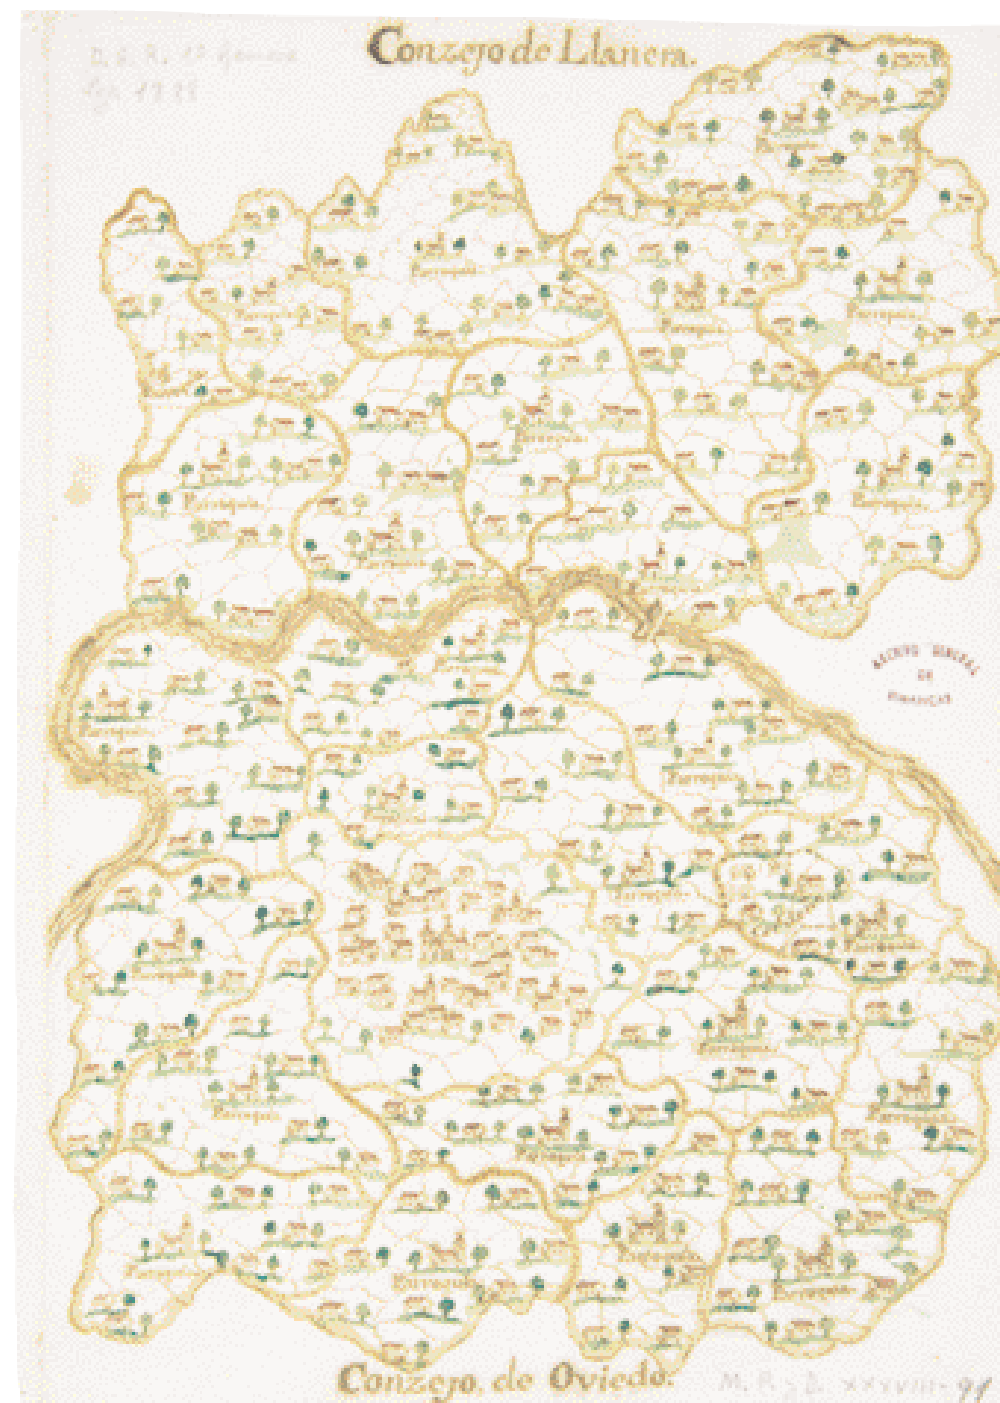 Conzejo de Llanera.
Parroquia.
Parroquia.
Parroquia.
Parroquia.
Parroquia.
Parroquia.
Parroquia.
Parroquia.
ARCHIVO GENERAL
DE
SIMANCAS
Parroquia.
Parroquia.
Parroquia.
Parroquia.
Parroquia.
Parroquia.
Parroquia.
Parroquia.
Parroquia.
Parroquia.
Parroquia.
Parroquia.
Parroquia.
Conzejo. de Oviedo.
M. P. y D. XXXVIII-91